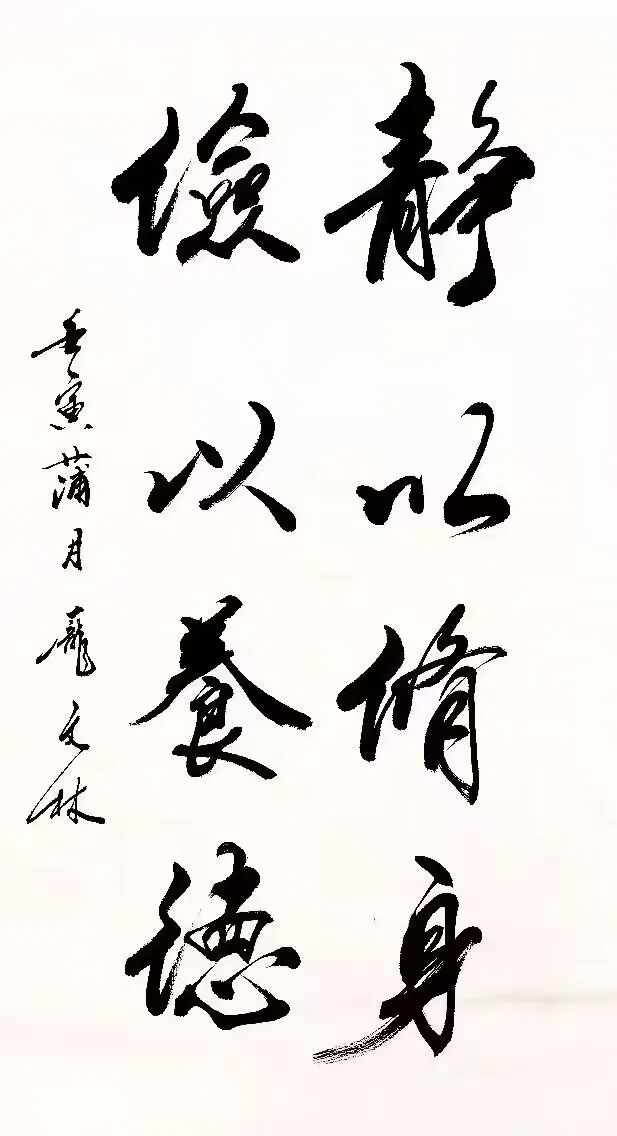 静以脩身
儉以養德
壬寅蒲月龐文林